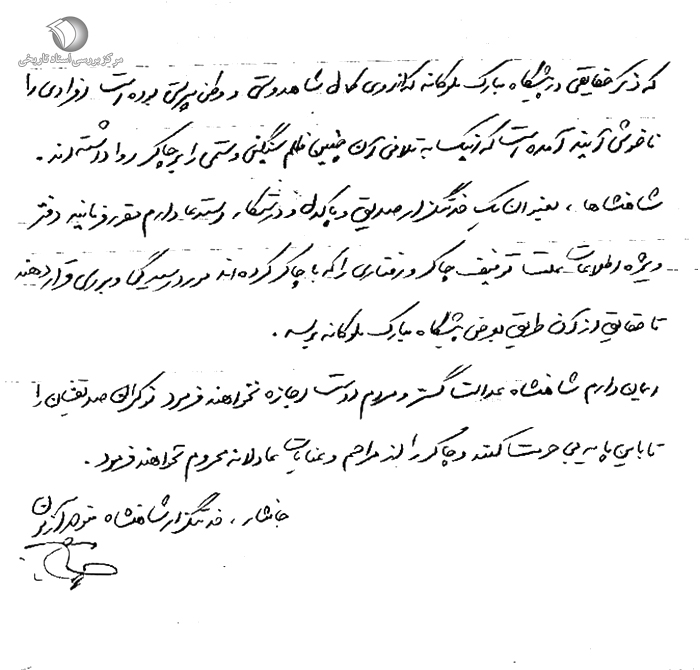 مرکز بررسی اسناد تاریخی
که ذکر حقایقی در پیشگاه مبارک ملوکانه که از روی کمال شاهدوستی و وطن پرستی بوده است افرادی را
ناخوش آیند آمده است که اینک به تلافی آن چنین ظلم سنگین و ستمی را بر چاکر روا داشته اند .
شاهنشاها ، بعنوان یک خدمتگزار صدیق و پاکدل و درستکار استدعا دارم مقرر فرمایند دفتر
ویژه اطلاعات علت توقیف چاکر و رفتاری را که با چاکر کرده اند مورد رسیدگی و بررسی قرار دهند
تا حقایق از آن طریق بعرض پیشگاه مبارک ملوکانه برسد .
ایمان دارم شاهنشاه عدالت گستر و مردم دوست اجازه نخواهند فرمود نوکران صدیقشان را
تا باین پایه بی حرمت کنند و چاکر را از مراحم و عنایات عادلانه محروم نخواهند فرمود .
جانثار ، خدمتگزار شاهنشاه منوچهر آزمون